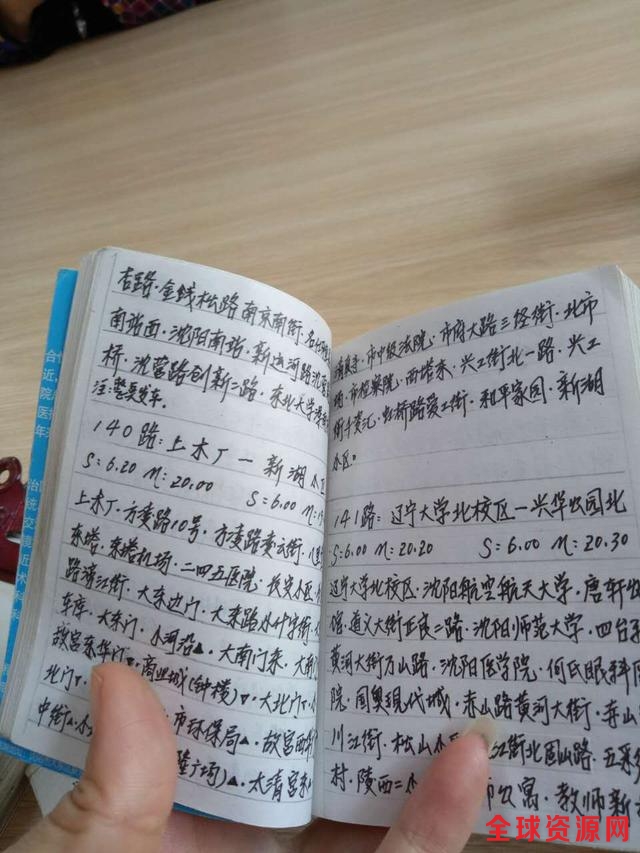 杏路·金钱松路南京南街·
南站西·沈阳南站·新运河路沈营
桥·沈营路创新二路·东北大学浑南
注:整点发车。
140路:上木厂一新湖小区
S=6.20 M=20.00 S=6.00 M=
上木厂·方凌路10号·方凌路凌云街·
东塔·东塔机场·二四五医院·长安小区·
路滂江街·大东边门·大东路小什字街·
车库·大东门·小河沿▲·大南门东·大南门
故宫东华门▼·商业城(钟楼)▼·大北门▼·
北门▼
中街▲·小 市环保局▲·故宫西华
广场)▲·太清宫东
市中级法院·市府大路三经街·北市
场·市检察院·西塔东·兴工街北一路·兴工
街十货汇·虹桥路爱工街·和平家园·新湖
小区。
141路:辽宁大学北校区一兴华公园北
S=6.00 M=20.20 S=6.00 M=20.30
辽宁大学北校区·沈阳航空航天大学·唐轩公
馆·道义大街正良三路·沈阳师范大学·四台子
黄河大街万山路·沈阳医学院·何氏眼科医
院·国奥现代城·赤山路黄河大街·寿山
川江街·松山小区 江街北固山路·五彩
村·陵西二小 师公寓·教师新
合
近,
院
医
年
治
统
交
近
术
科
全球资源网